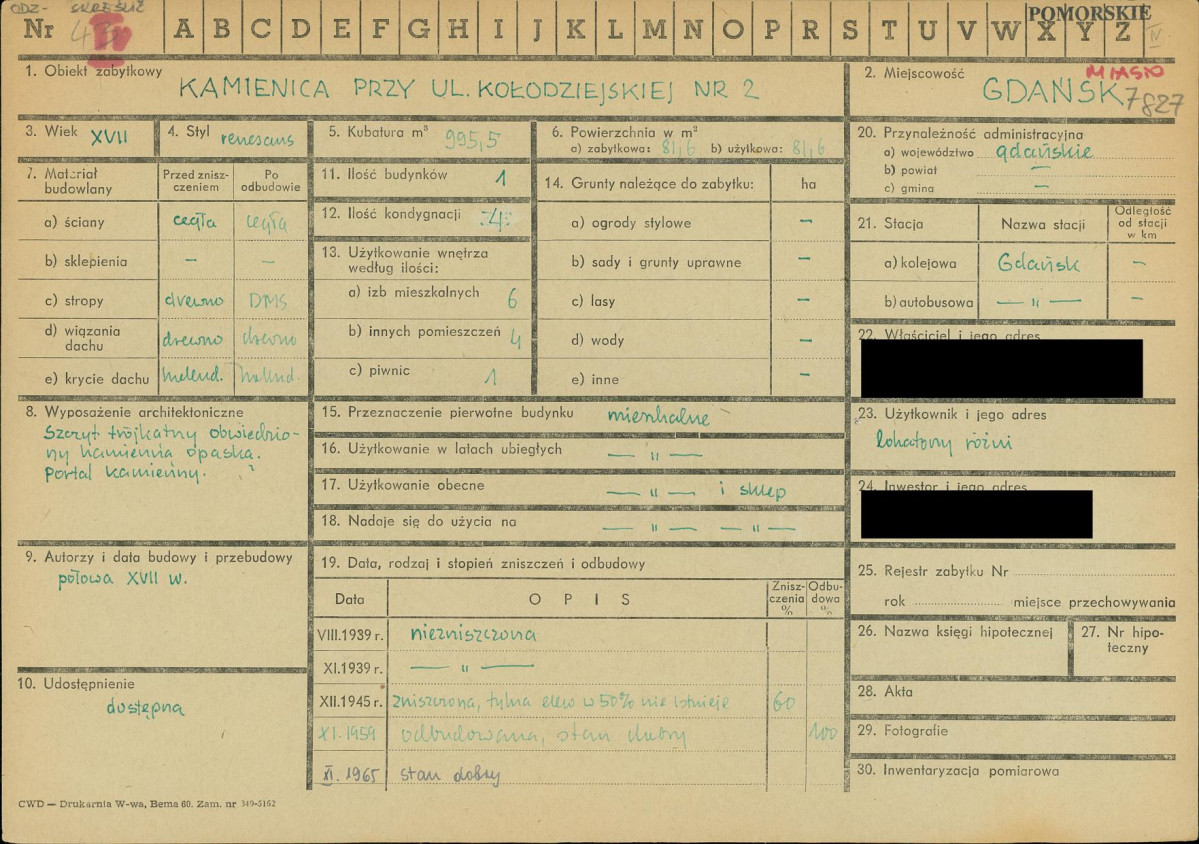 ODZ- SKREŚLIĆ
Nr 4 A B C D E F G H I J K L M N O P R S T U V W X Y Z
POMORSKIE
IV
1. Obiekt zabytkowy
KAMIENICA PRZY UL. KOŁODZIEJSKIEJ NR 2
2. Miejscowość
MIASTO
GDAŃSK 7827
3. Wiek XVII
4. Styl renesans
5. Kubatura m³ 995,5
6. Powierzchnia w m²
a) zabytkowa: 81,6 b) użytkowa: 81,6
7. Materiał budowlany
Przed zniszczeniem
Po odbudowie
a) ściany cegła cegła
b) sklepienia — —
c) stropy drewno DMS
d) wiązania dachu drewno drewno
e) krycie dachu holend. holend.
8. Wyposażenie architektoniczne
Szczyt trójkątny obwiednio-
ny kamienną opaską.
Portal kamienny.
9. Autorzy i data budowy i przebudowy
połowa XVII w.
10. Udostępnienie
dostępna
11. Ilość budynków 1
12. Ilość kondygnacji 4
13. Użytkowanie wnętrza według ilości:
a) izb mieszkalnych 6
b) innych pomieszczeń 4
c) piwnic 1
14. Grunty należące do zabytku: ha
a) ogrody stylowe —
b) sady i grunty uprawne —
c) lasy —
d) wody —
e) inne —
15. Przeznaczenie pierwotne budynku mieszkalne
16. Użytkowanie w latach ubiegłych — " —
17. Użytkowanie obecne — " — i sklep
18. Nadaje się do użycia na — " — — " —
19. Data, rodzaj i stopień zniszczeń i odbudowy
Data OPIS Zniszczenia % Odbudowa %
VIII.1939 r. niezniszczona
XI.1939 r. — " —
XII.1945 r. zniszczona, tylna elew w 50% nie istnieje 60
XI.1959 odbudowana, stan dobry 100
XI.1965 stan dobry
20. Przynależność administracyjna
a) województwo gdańskie
b) powiat —
c) gmina —
21. Stacja Nazwa stacji Odległość od stacji w km
a) kolejowa Gdańsk —
b) autobusowa — " — —
22. Właściciel i jego adres
23. Użytkownik i jego adres
lokatorzy różni
24. Inwestor i jego adres
25. Rejestr zabytku Nr
rok miejsce przechowywania
26. Nazwa księgi hipotecznej
27. Nr hipoteczny
28. Akta
29. Fotografie
30. Inwentaryzacja pomiarowa
CWD — Drukarnia W-wa, Bema 60. Zam. nr 349-5162